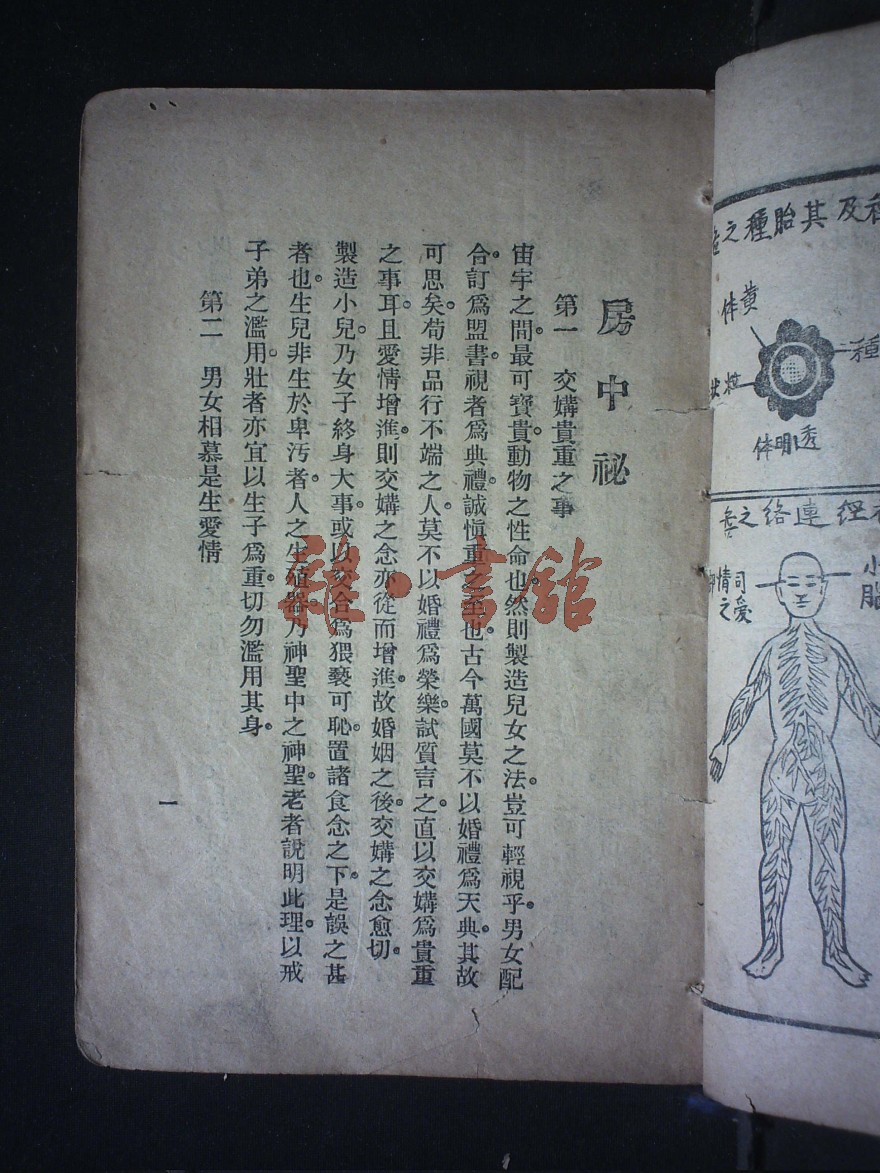 房中祕
第一　交媾貴重之事
宙宇之間。最可寶貴。動物之性命也。然則製造兒女之法。豈可輕視乎。男女配
合。訂爲盟書。視者爲典禮。誠愼重之至也。古今萬國莫不以婚禮爲天典。其故
可思矣。苟非品行不端之人。莫不以婚禮爲榮樂。試質言之。直以交媾爲貴重
之事耳。且愛情增進。則交媾之念亦從而增進。故婚姻之後。交媾之念愈切。
製造小兒。乃女子終身大事。或以交合爲猥褻可恥。置諸食念之下。是誤之甚
者也。生兒非生於卑汚者。人之生殖器。乃神聖中之神聖。老者說明此理。以戒
子弟之濫用。壯者亦宜以生子爲重。切勿濫用其身。
第二　男女相慕是生愛情
一
及其胎種之
黄体
種
透明体
經連絡之
小腦
司愛情之
雜·書館